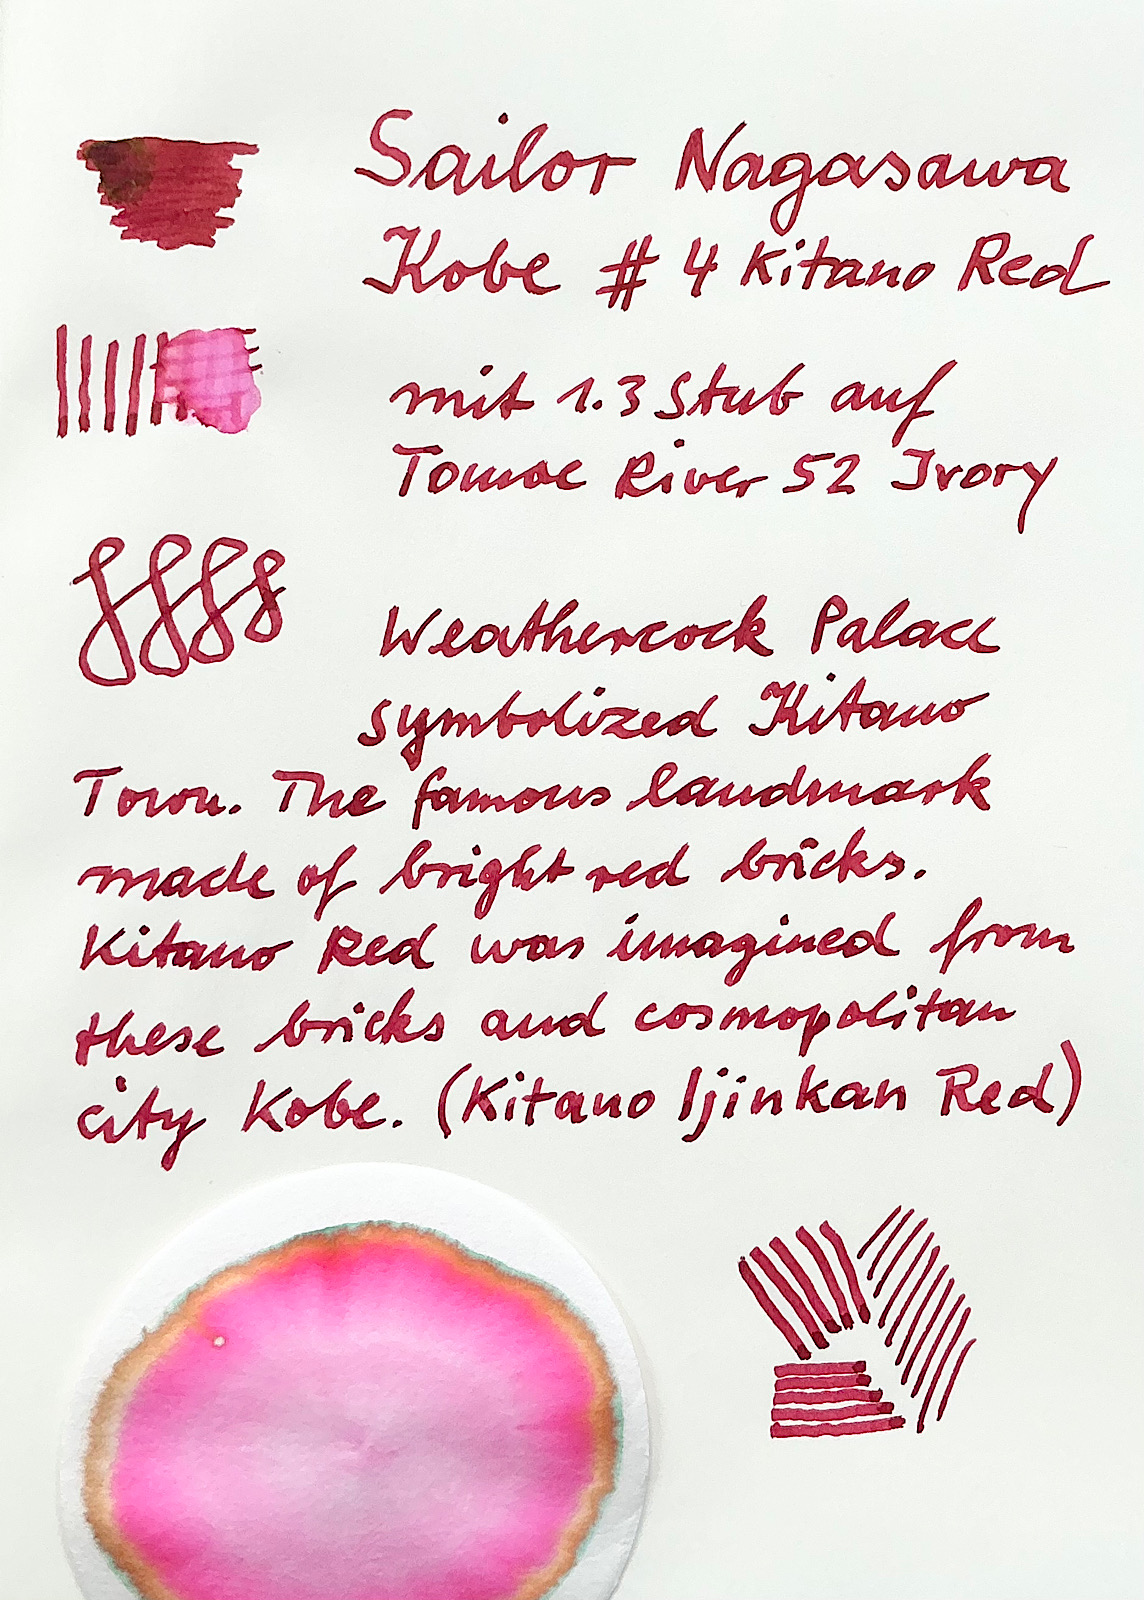 Sailor Nagasawa
Kobe # 4 Kitano Red
mit 1.3 Stub auf
Tomoe River 52 Ivory
Weathercock Palace
symbolized Kitano
Town. The famous landmark
made of bright red bricks.
Kitano Red was imagined from
these bricks and cosmopolitan
city Kobe. (Kitano Ijinkan Red)